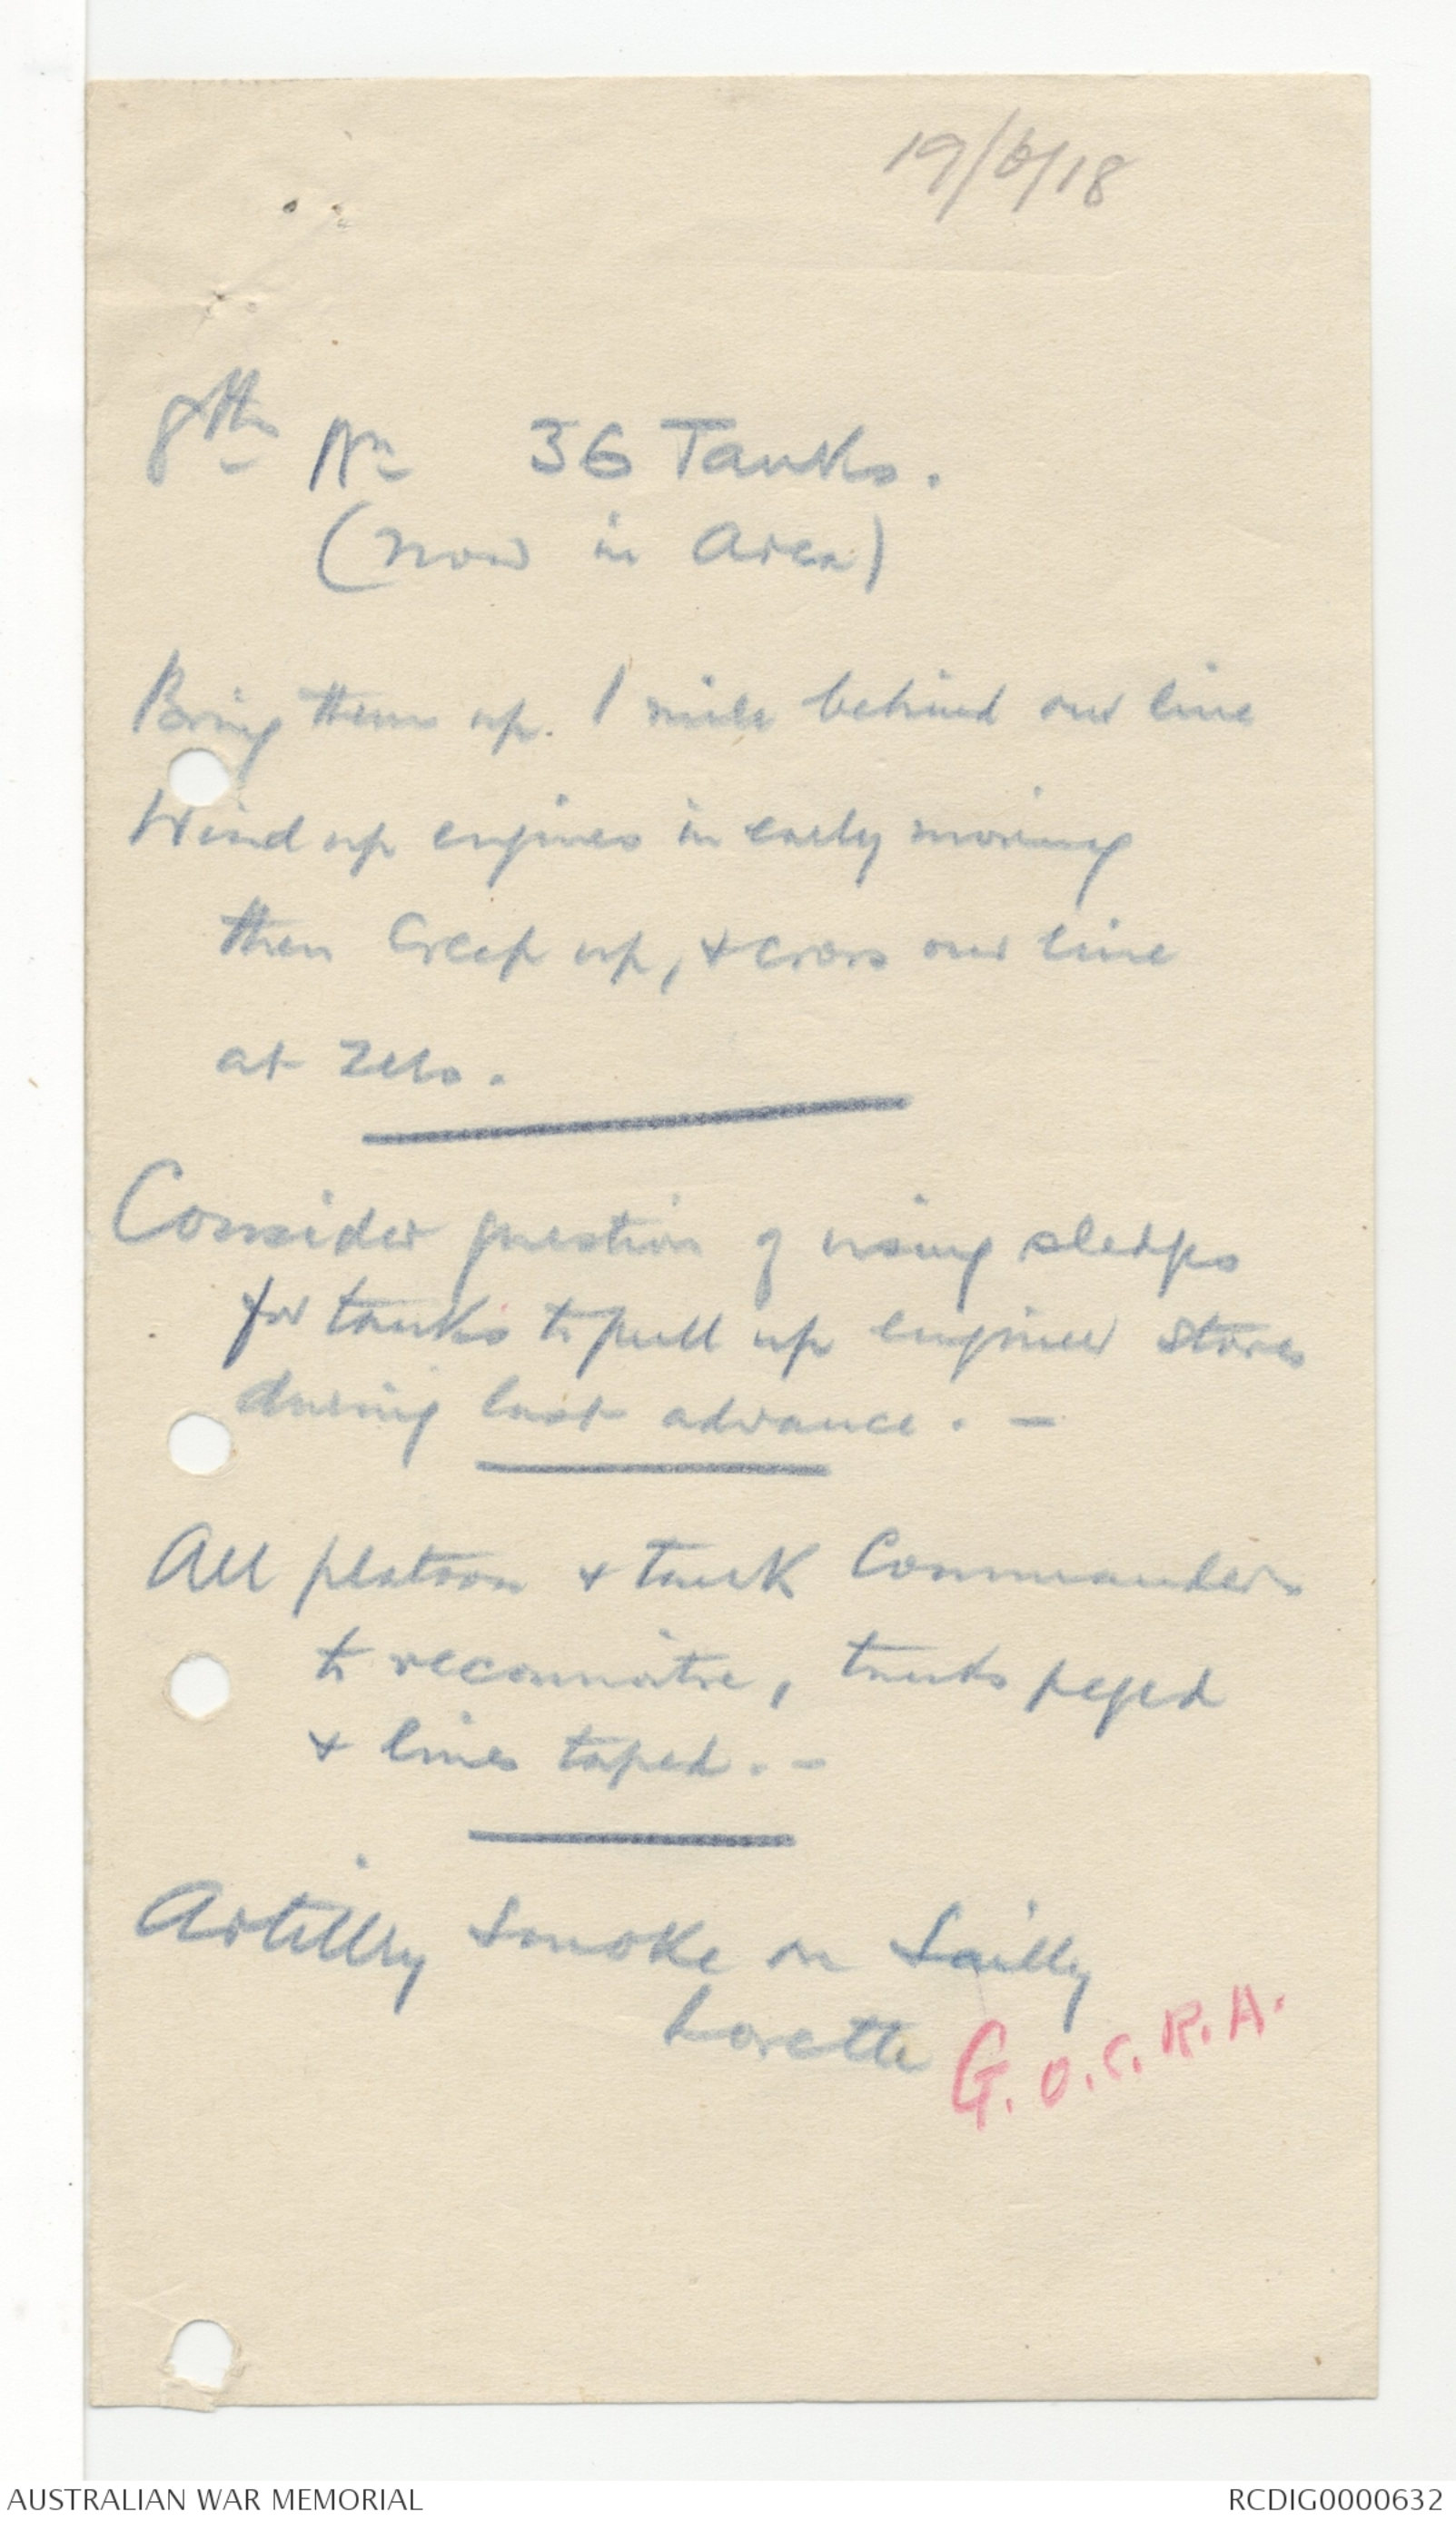 19/6/18
8th Bn 36 Tanks.
(now in Area)
Bring them up. 1 mile behind our line
Wind up engines in early morning
then creep up, & cross our line
at Zero.
Consider question of using sledges
for tanks to pull up engineer stores
during last advance. -
All platoon & tank Commanders
to reconnoitre, tanks pegged
& lines taped. -
Artillery Smoke on Sailly
Lorette G.O.C.R.A.
AUSTRALIAN WAR MEMORIAL
RCDIG0000632